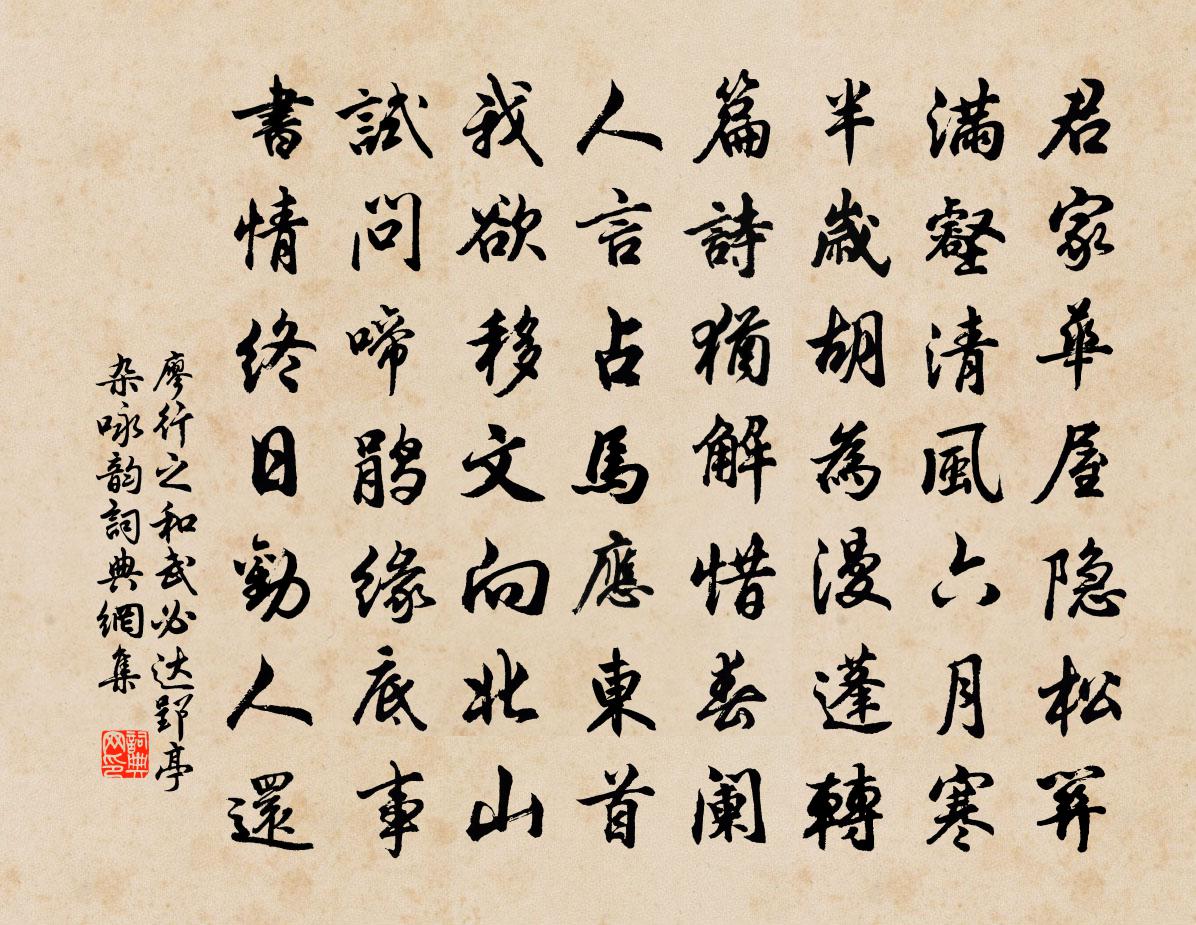 君家華屋隐松關
滿壑清風六月寒
半歲胡為漫蓬轉
篇詩猶解惜春阑
人言占馬應東首
我欲移文向北山
試問啼鹃缘底事
書情终日勸人還
廖行之和武必达郢亭
杂咏韵詞典網集
詞典网印